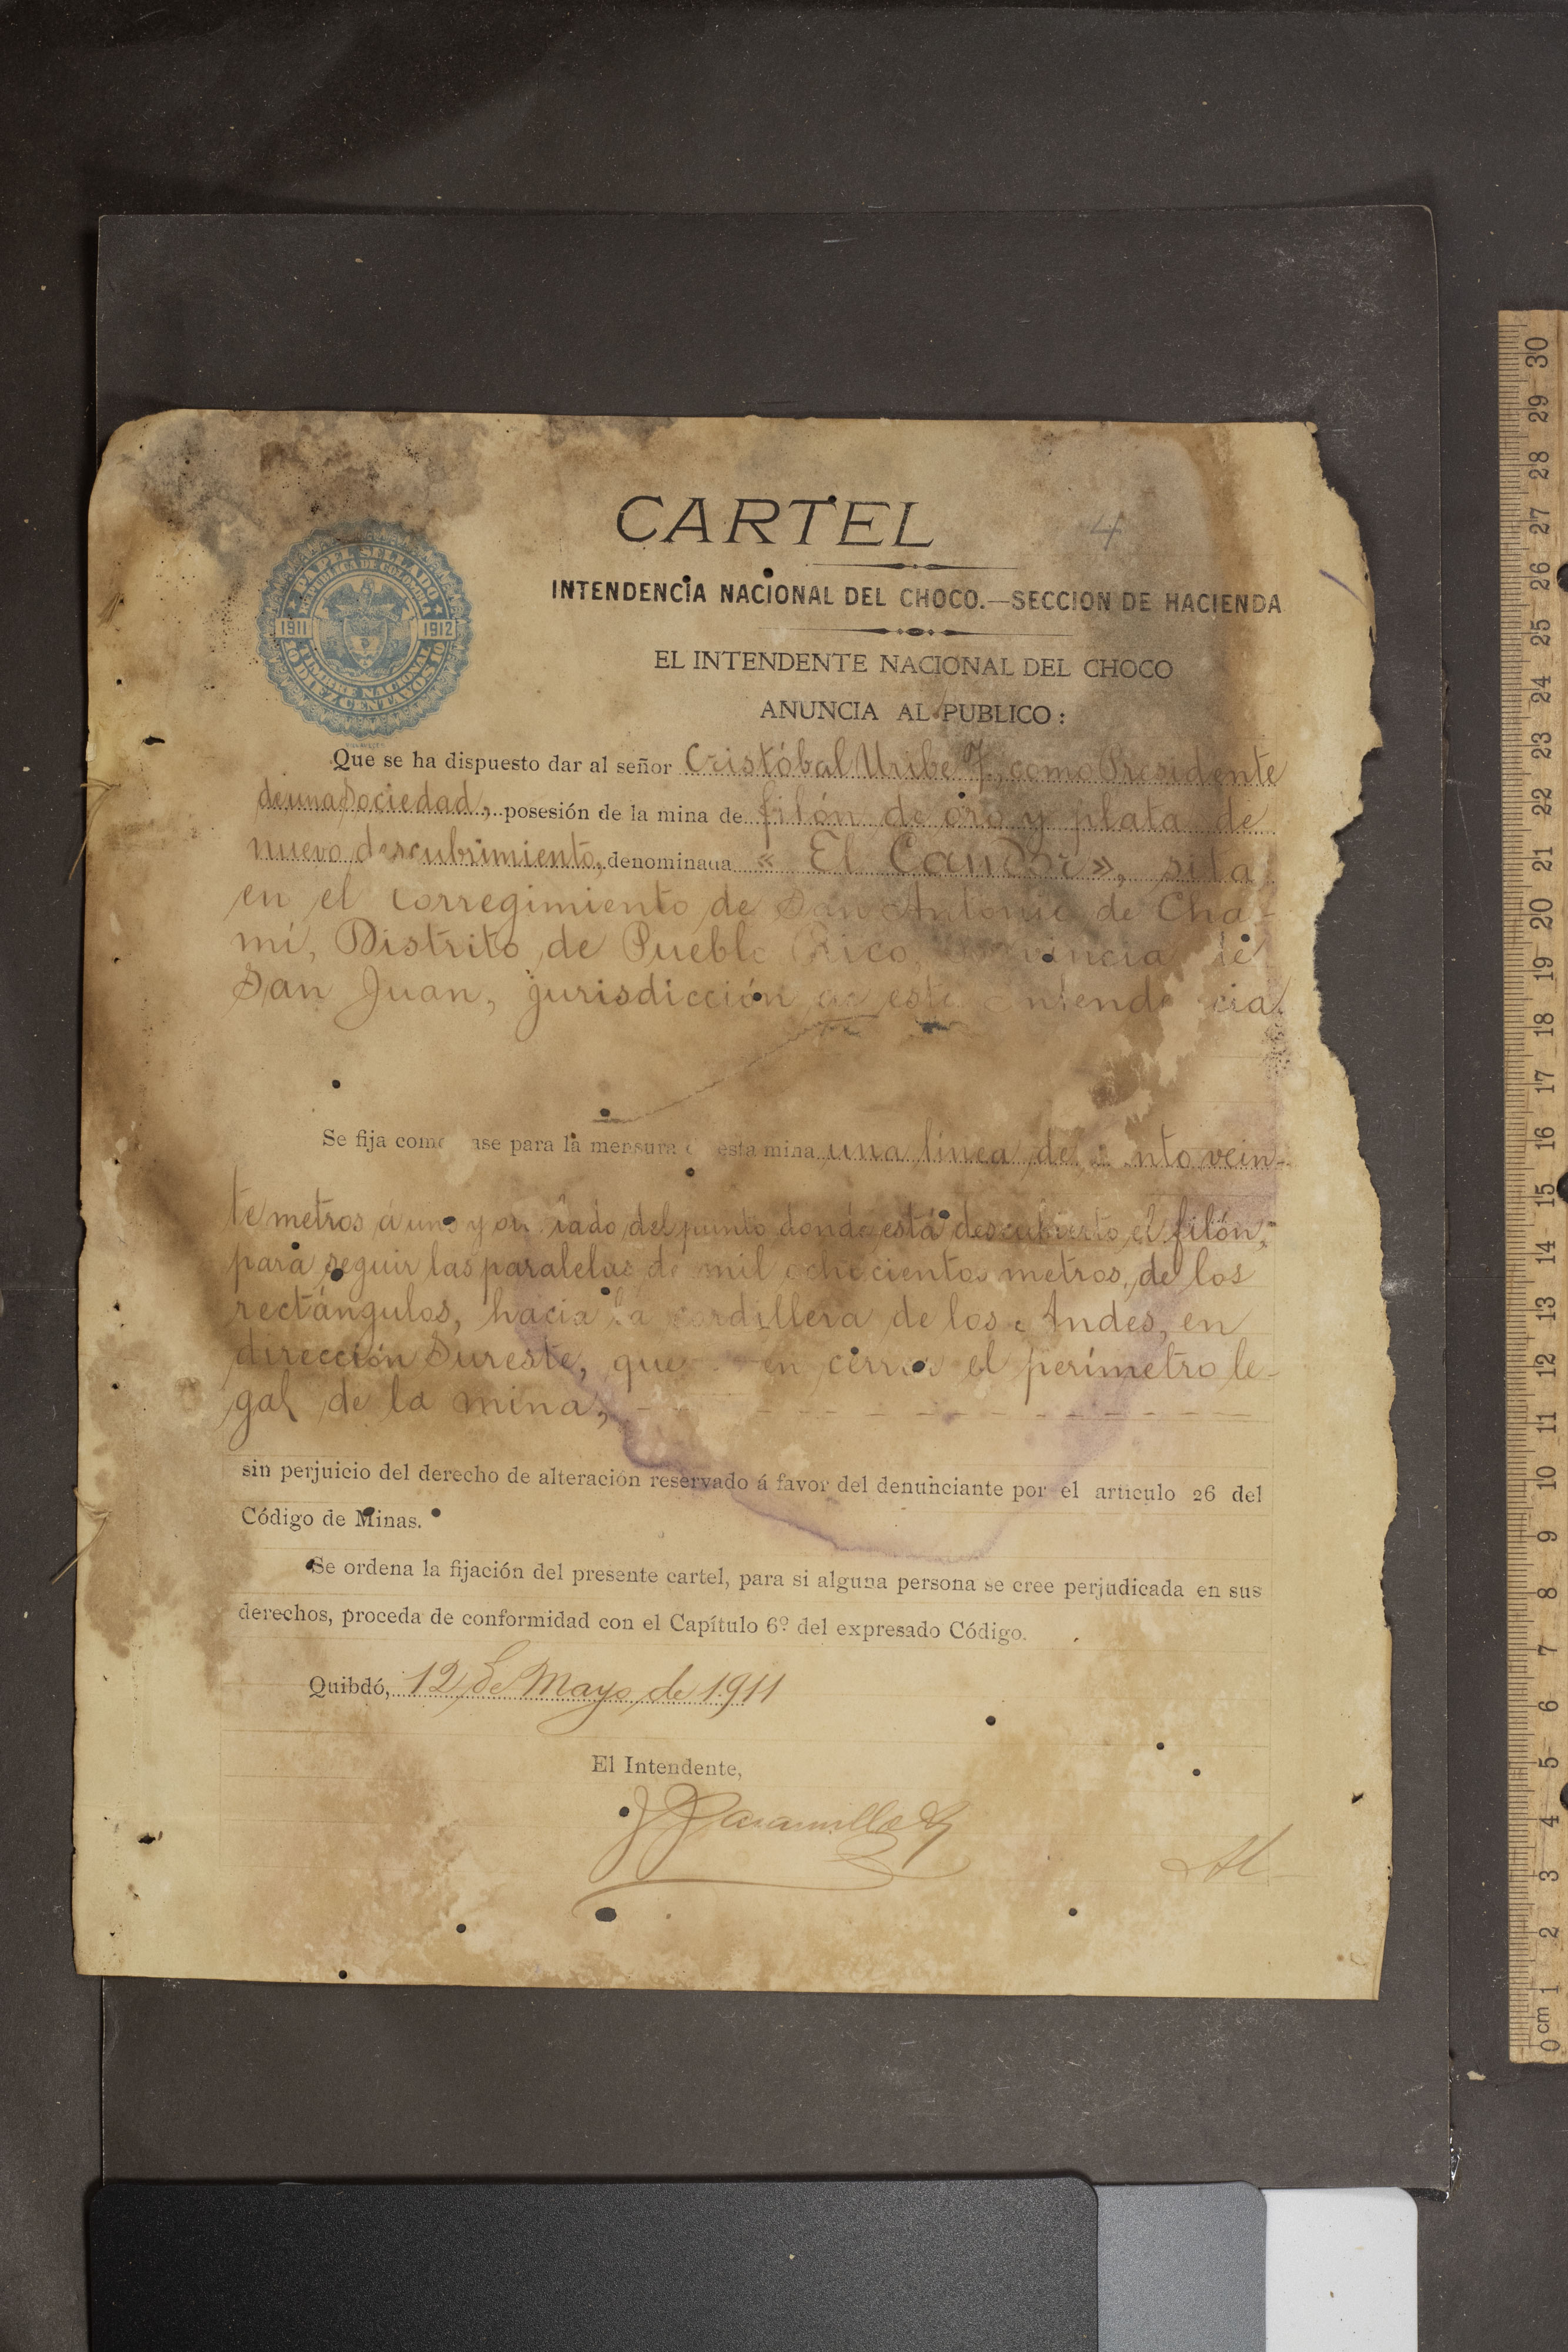 CARTEL
4
INTENDENCIA NACIONAL DEL CHOCO.—SECCION DE HACIENDA
PAPEL SELLADO
REPUBLICA DE COLOMBIA
1911 1912
TIMBRE NACIONAL
10 DIEZ CENTAVOS 10
EL INTENDENTE NACIONAL DEL CHOCO
ANUNCIA AL PUBLICO:
Que se ha dispuesto dar al señor Cristóbal Uribe J., como Presidente
de una Sociedad, posesión de la mina de filón de oro y plata de
nuevo descubrimiento, denominada « El Condor », sita
en el corregimiento de San Antonio de Cha-
mí, Distrito de Pueblo Rico, de
San Juan, jurisdicción de esta
Se fija para la mensura esta mina una línea de vein-
te metros á uno y lado del punto donde está descubierto el filón,
para seguir las paralelas de mil ochocientos metros, de los
rectángulos, hacia la cordillera de los Andes, en
dirección Sureste, que el perímetro le-
gal de la mina,
sin perjuicio del derecho de alteración reservado á favor del denunciante por el artículo 26 del
Código de Minas.
Se ordena la fijación del presente cartel, para si alguna persona se cree perjudicada en sus
derechos, proceda de conformidad con el Capítulo 6º del expresado Código.
Quibdó, 12 de Mayo de 1911
El Intendente,
J Jaramillo
0 cm 1 2 3 4 5 6 7 8 9 10 11 12 13 14 15 16 17 18 19 20 21 22 23 24 25 26 27 28 29 30